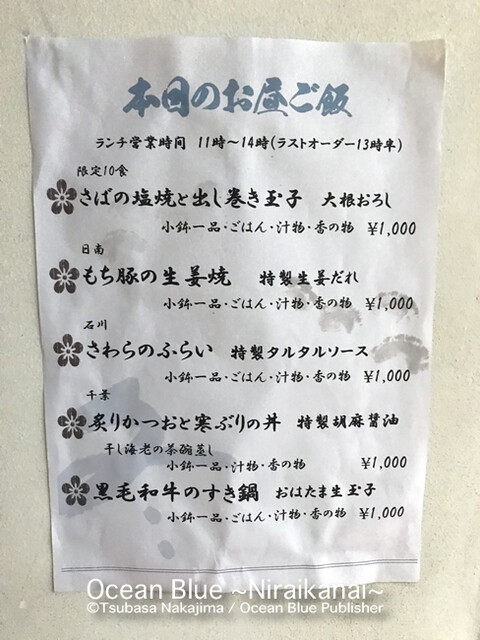 本日のお昼ご飯
ランチ営業時間 11時〜14時(ラストオーダー13時半)
限定10食
さばの塩焼と出し巻き玉子 大根おろし
小鉢一品・ごはん・汁物・香の物 ¥1,000
日南
もち豚の生姜焼 特製生姜だれ
小鉢一品・ごはん・汁物・香の物 ¥1,000
石川
さわらのふらい 特製タルタルソース
小鉢一品・ごはん・汁物・香の物 ¥1,000
千葉
炙りかつおと寒ぶりの丼 特製胡麻醬油
干し海老の茶碗蒸し
小鉢一品・汁物・香の物 ¥1,000
黒毛和牛のすき鍋 おはたま生玉子
小鉢一品・ごはん・汁物・香の物 ¥1,000
Ocean Blue ~Niraikanai~
©Tsubasa Nakajima / Ocean Blue Publisher